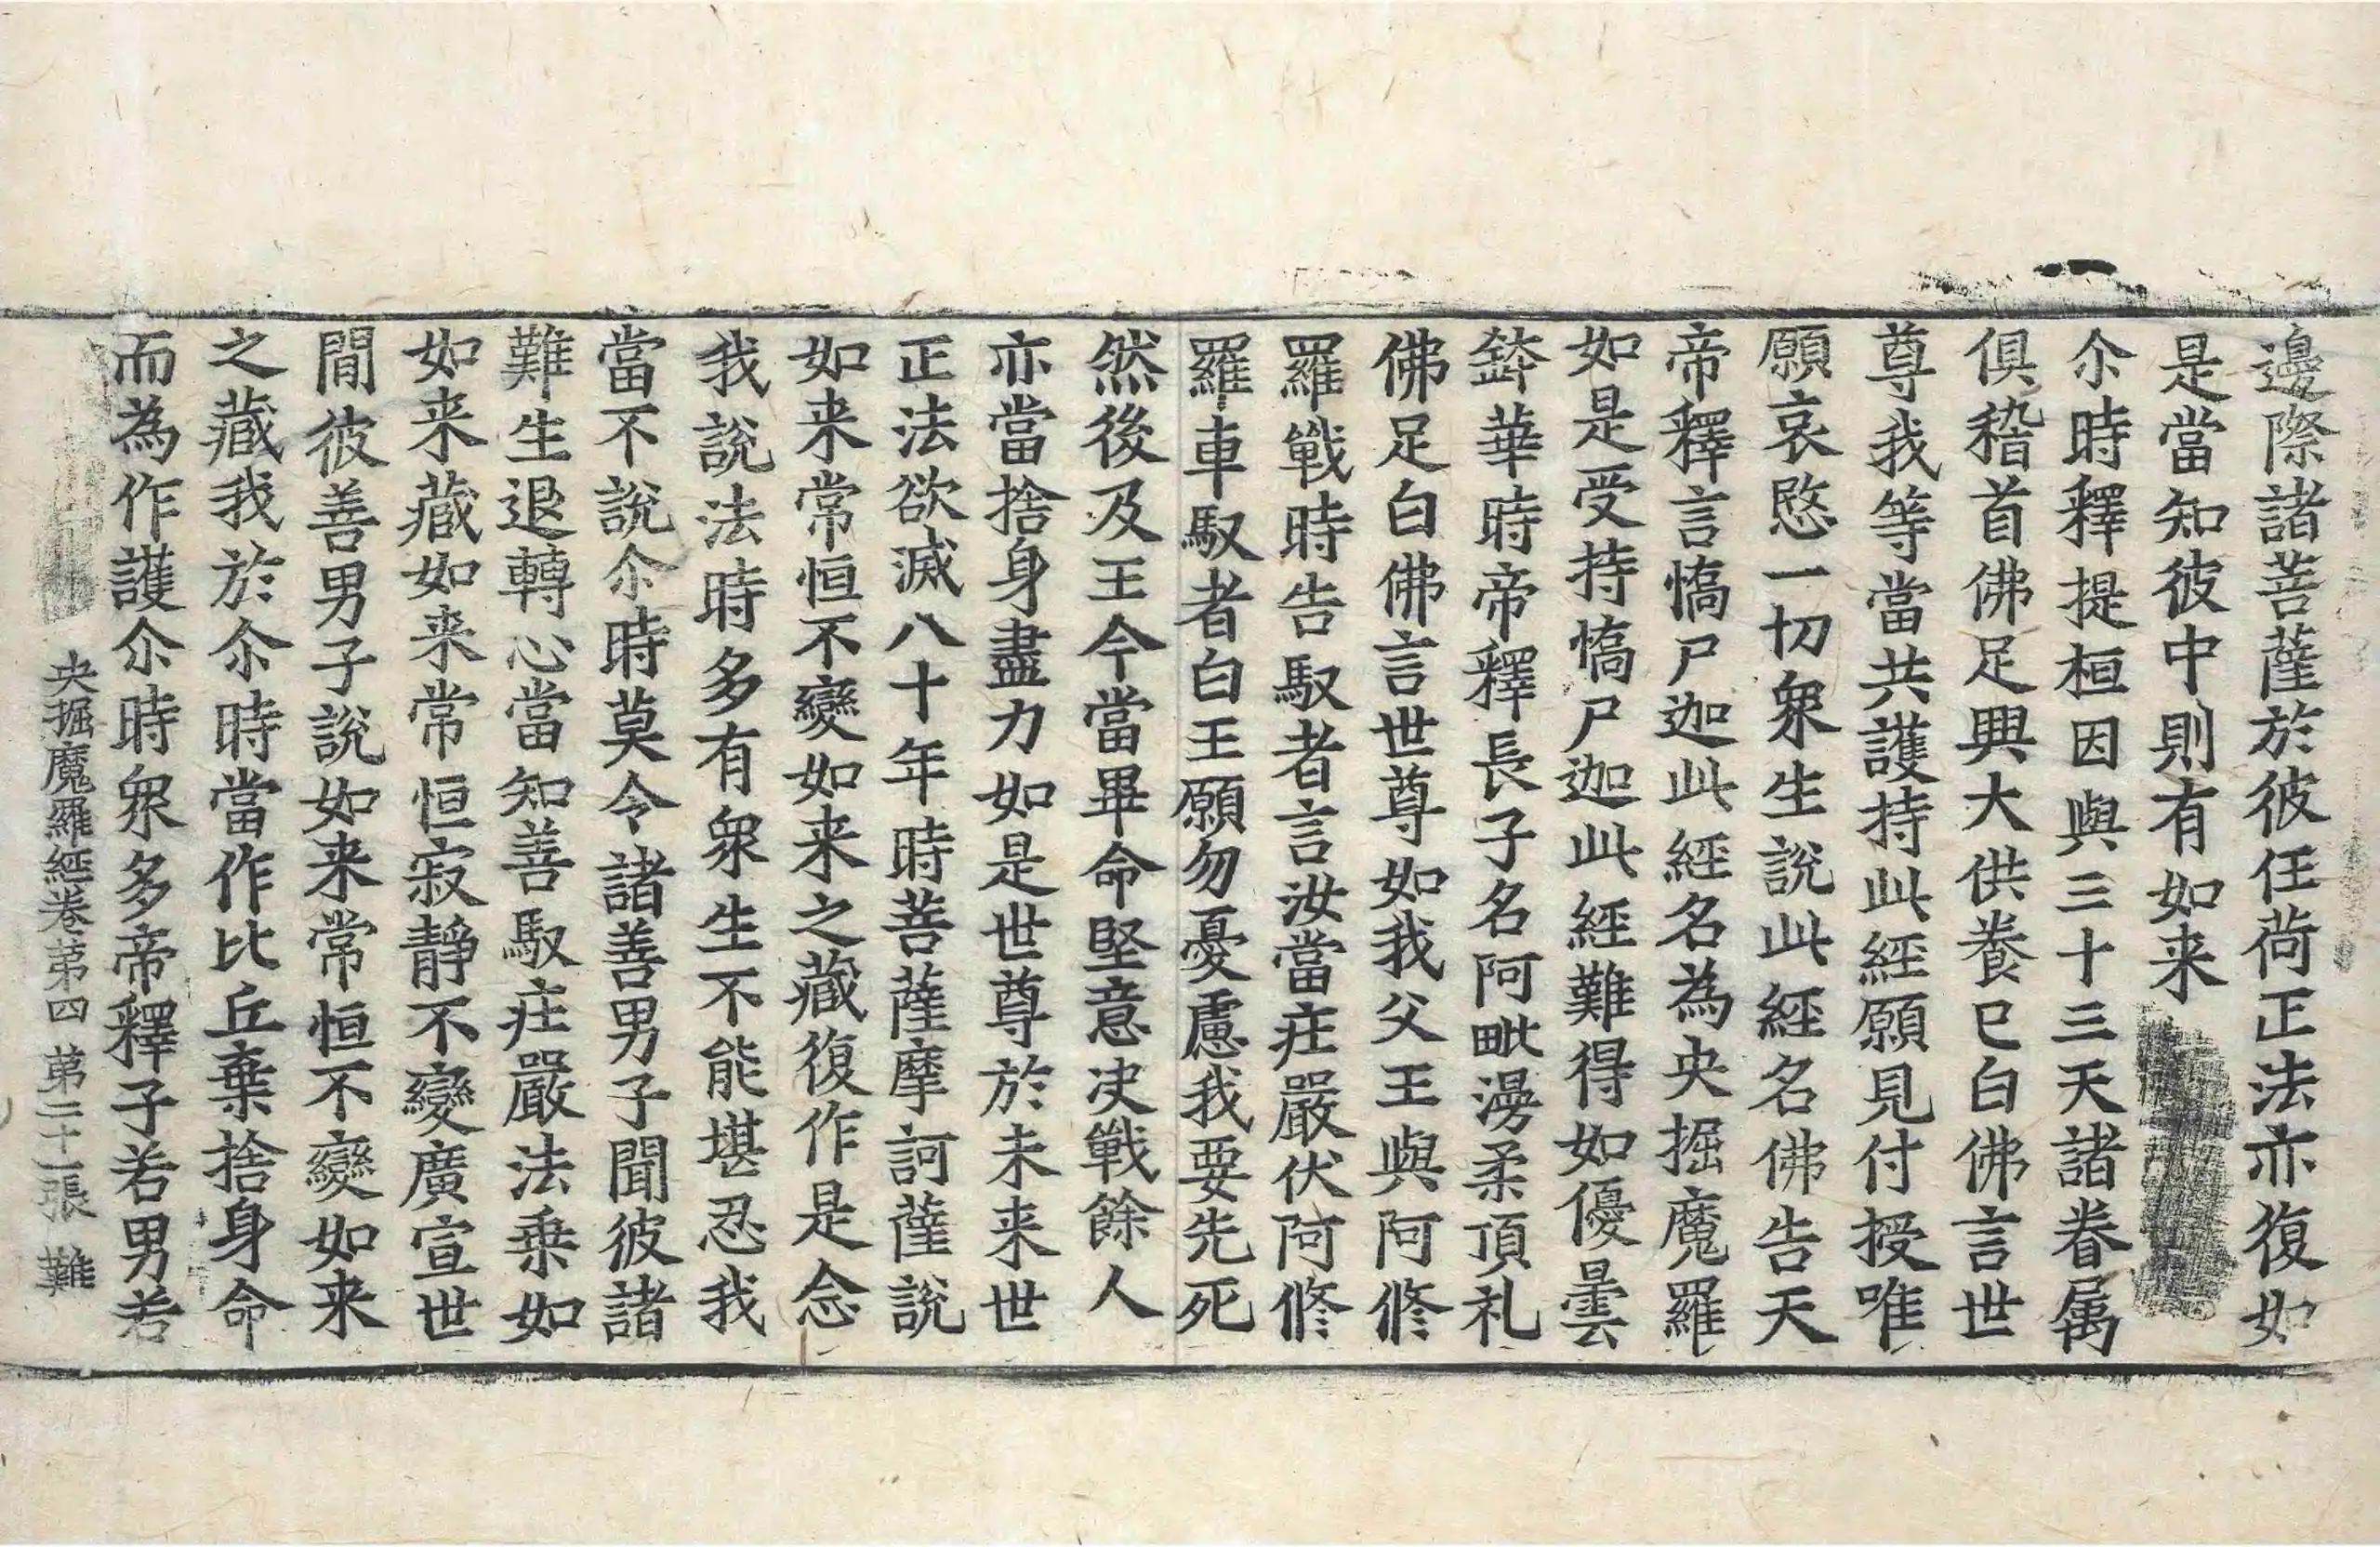 邊際諸菩薩於彼任荷正法亦復如
是當知彼中則有如来
尒時釋提桓因與三十三天諸眷属
俱稽首佛足興大供養已白佛言世
尊我等當共護持此經願見付授唯
願哀愍一切衆生說此經名佛告天
帝釋言憍尸迦此經名為央掘魔羅
如是受持憍尸迦此經難得如優曇
鉢華時帝釋長子名阿毗漫柔頂礼
佛足白佛言世尊如我父王與阿修
羅戰時告馭者言汝當庄嚴伏阿修
羅車馭者白王願勿憂慮我要先死
然後及王今當畢命堅意决戰餘人
亦當捨身盡力如是世尊於未来世
正法欲滅八十年時菩薩摩訶薩說
如来常恒不變如来之藏復作是念
我說法時多有衆生不能堪忍我
當不說尒時莫令諸善男子聞彼諸
難生退轉心當知善馭庄嚴法乗如
如来藏如来常恒寂静不變廣宣世
間彼善男子說如来常恒不變如来
之藏我於尒時當作比丘棄捨身命
而為作護尒時衆多帝釋子若男若
央掘魔羅經卷苐四 苐二十一張 難